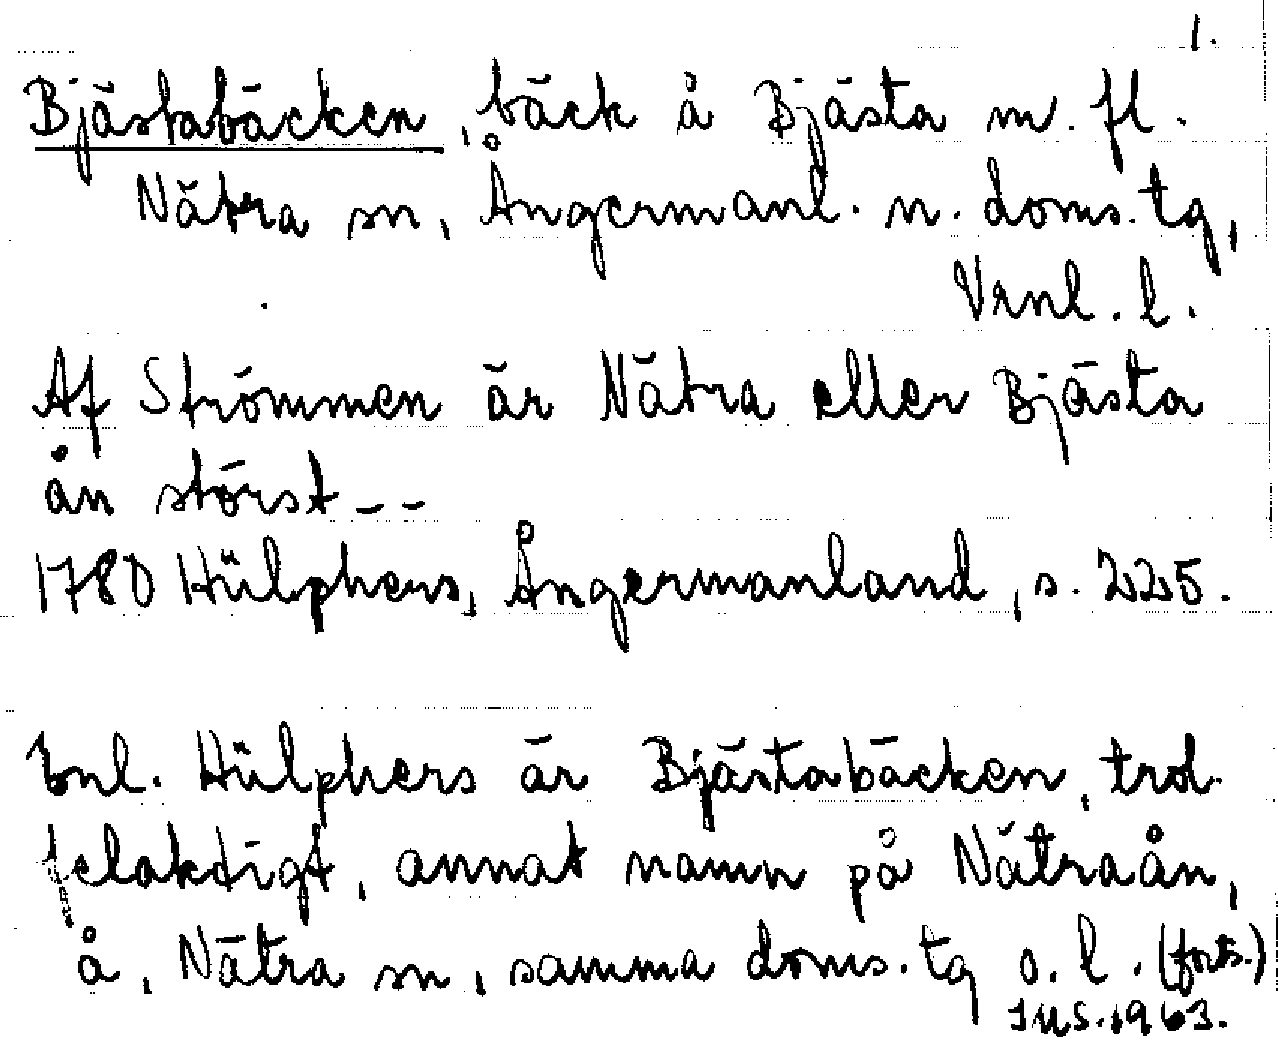 1.
Bjästabäcken, bäck å Bjästa m. fl.
Nätra sn, Ångermanl. n. doms. tg,
Vrnl. l.
Af Strömmen är Nätra eller Bjästa
ån störst - -
1780 Hülphers, Ångermanland, s. 225.
Enl. Hülphers är Bjästabäcken, trol.
felaktigt, annat namn på Nätraån,
å, Nätra sn, samma doms. tg o. l. (forts.)
IMS. 1963.